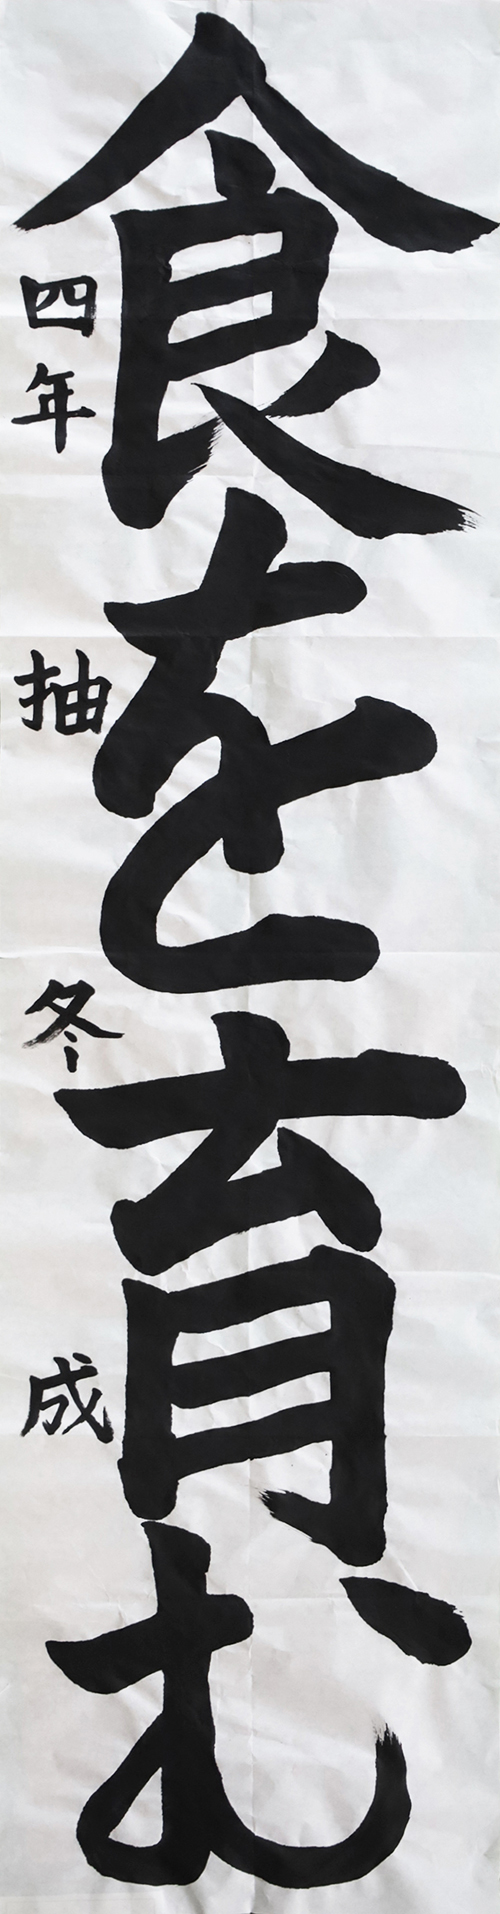 食を育む
四年 抽冬成